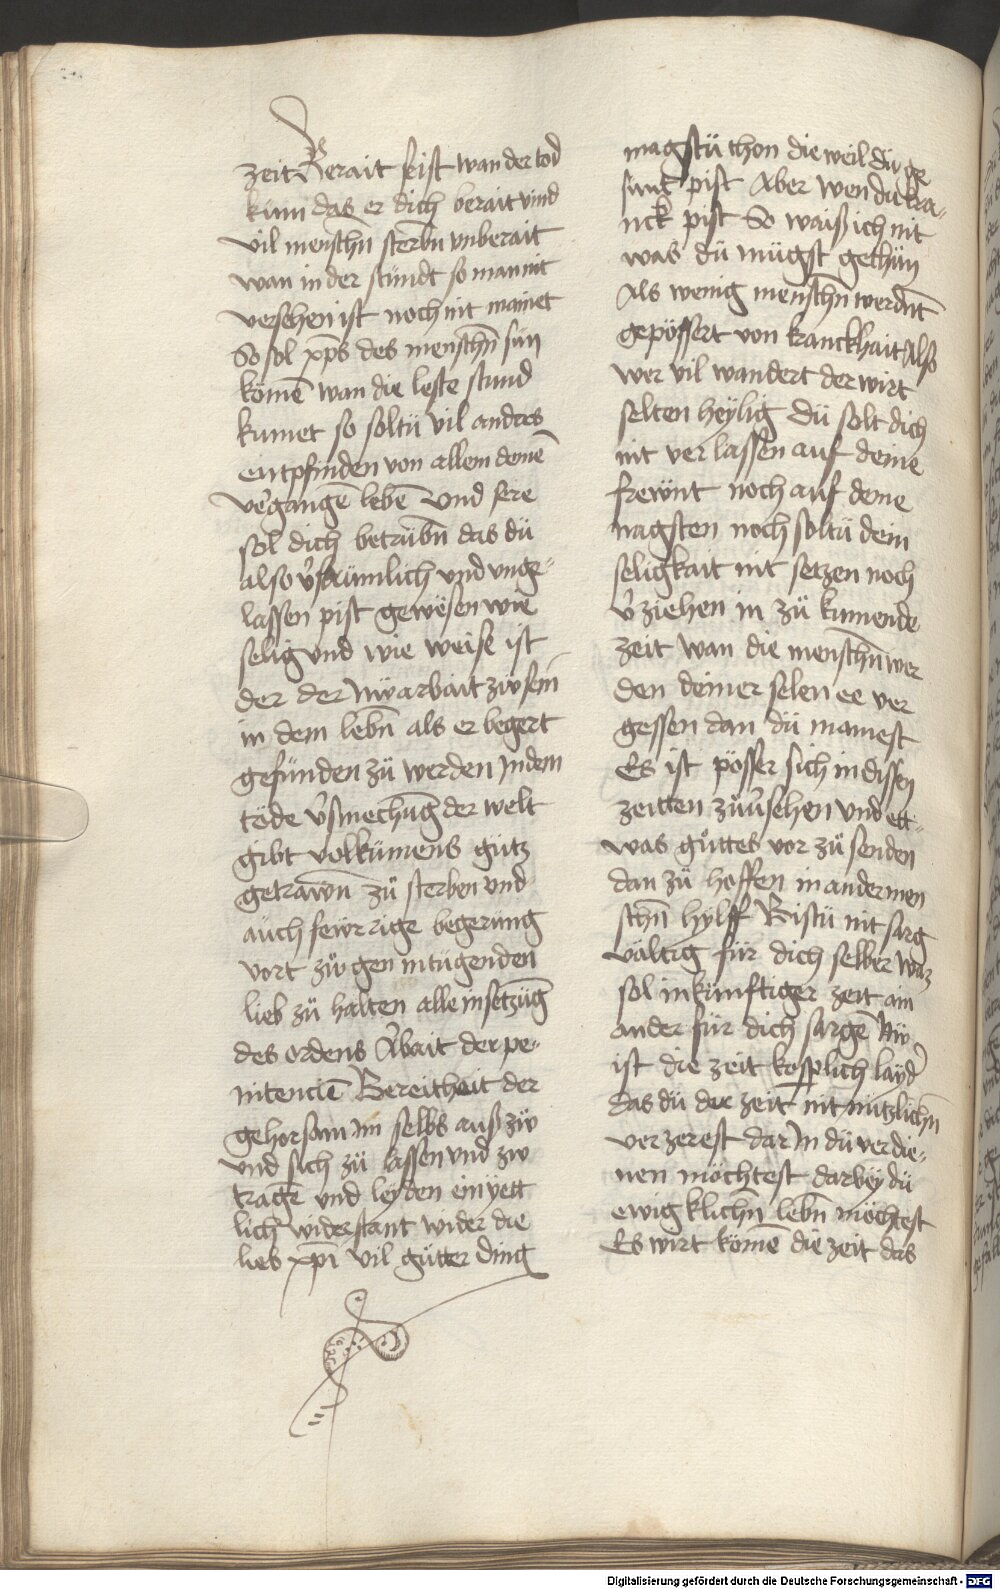 zeit Berait seist wan der tod
kum das er dich berait vind
vil menschn̄ sterbn̄ vnberait
wan in der stündt so man nit
versehen ist noch nit mainet
So sol xp̄s des menschn̄ sün
kömē wan die leste stund
kumet so soltü vil andres
entpfinden von allem deinē
v̓gangē lebē vnd sere
sol dich betrübn̄ das dü
also v̓säumlich vnd vnge-
lassen pist gewesen wie
selig vnd wie weise ist
der der nw arbait zw sein
in dem lebn̄ als er begert
gefünden zü werden in dem
töde v̓smechūg der welt
gibt volkümens gütz
getrawn̄ zü sterben vnd
auch fewrrige begerung
vort zw gen in tügenden
lieb zü halten alle insetzūg
des ordens Arbait der pe-
nitenciē Bereitheit der
gehorsam im selbs auß zw
vnd sich zü lassen vnd zw
tragē vnd leyden ein yett
lich widerstant wider die
lieb xp̄i vil gütter ding
magstü thon die weil dü ge
sunt pist Aber wen du kra-
nck pist So waiß ich nit
was dü mügst gethün
Als wenig menschn̄ werdn̄t
gepössert von kranckhait Also
wer vil wandert der wirt
selten heylig Dü solt dich
nit verlassen auf deine
frewnt noch auf deine
nagsten noch soltü dein
seligkait nit setzen noch
v̓ziehen in zü kumende
zeit wan die menschn̄ wer
den deiner selen ee ver
gessen dan dü mainest
Es ist pösser sich in dissen
zeitten zü v̓sehen vnd ett-
was güttes vor zü senden
dan zü hoffen in ander men
schn̄ hylff Bistü nit sarg
vältig für dich selber waz
sol in künftiger zeit ain
ander für dich sargē Nw
ist die zeit kosplich layd̓
das dü die zeit nit nützlichn̄
verzerest dar in dü verdie-
nen möchtest darbey dü
ewigklichn̄ lebn̄ möchtest
Es wirt kömē die zeit das
Digitalisierung gefördert durch die Deutsche Forschungsgemeinschaft - DFG